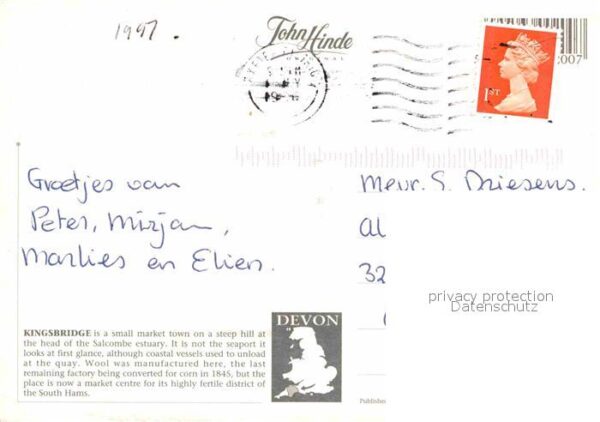 1997.
John Hinde
1ST
2007
Groetjes van
Peter, Mirjam,
Marlies en Elien.
Mevr. S. Driesens.
Al
32
privacy protection
Datenschutz
DEVON
KINGSBRIDGE is a small market town on a steep hill at
the head of the Salcombe estuary. It is not the seaport it
looks at first glance, although coastal vessels used to unload
at the quay. Wool was manufactured here, the last
remaining factory being converted for corn in 1845, but the
place is now a market centre for its highly fertile district of
the South Hams.
Publishe